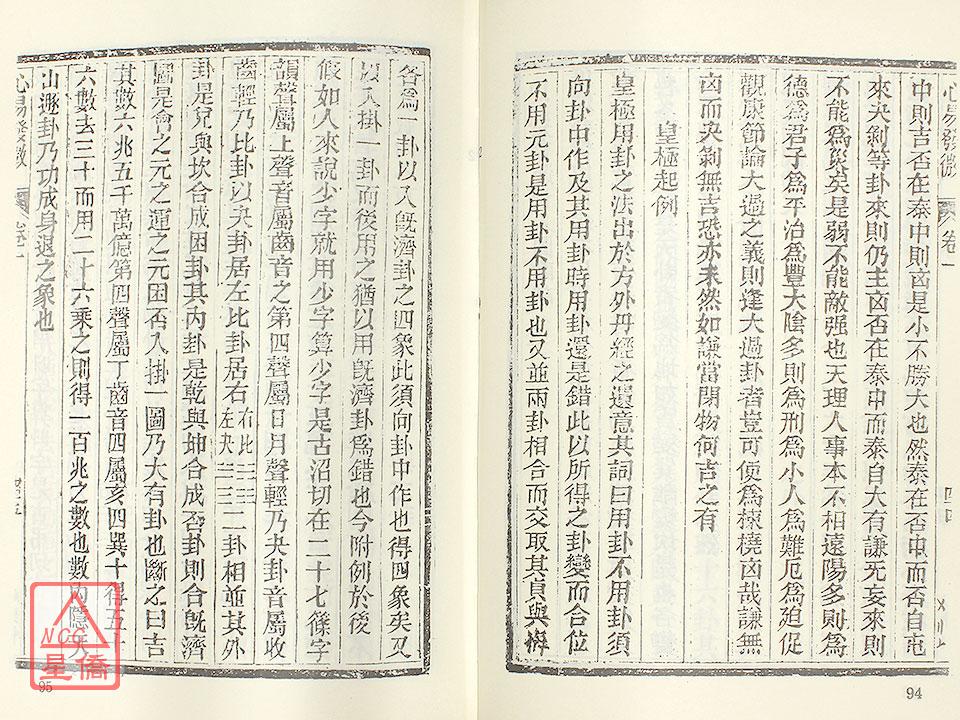 心易發微 卷一 四四
中則吉否在泰中則凶是小不勝大也然泰在否中而否自屯
來夬剝等卦來則仍主凶否在泰中而泰自大有謙无妄來則
不能為災矣是弱不能敵强也天理人事本不相遠陽多則為
德為君子為平治為豐大陰多則為刑為小人為難厄為廹促
觀康節論大過之義則逢大過卦者豈可便為棟橈凶哉謙無
凶而夬剝無吉恐亦未然如謙當開物何吉之有
皇極起例
皇極用卦之法出於方外丹經之遺意其詞曰用卦不用卦須
向卦中作及其用卦時用卦還是錯此以所得之卦變而合位
不用元卦是用卦不用卦也又並兩卦相合而交取其貞與悔
94
各為一卦以入旣濟卦之四象此須向卦中作也得四象矣又
以入掛一卦而後用之猶以用旣濟卦為錯也今附例於後
假如人來說少字就用少字算少字是古沼切在二十七篠字
韻聲屬上聲音屬齒音之第四聲屬日月聲輕乃夬卦音屬收
齒輕乃比卦以夬卦居左比卦居右右比左夬二卦相並其外
卦是兌與坎合成困卦其內卦是乾與坤合成否卦則合旣濟
圖是會之元之運之元困否入掛一圖乃大有卦也斷之曰吉
其數六兆五千萬億第四聲屬丁齒音四屬亥四異十得五十
六數去三十而用二十六乘之則得一百兆之數也數內隱天
山遯卦乃功成身退之象也
心易發微 卷一 四五
95
NCC
星僑